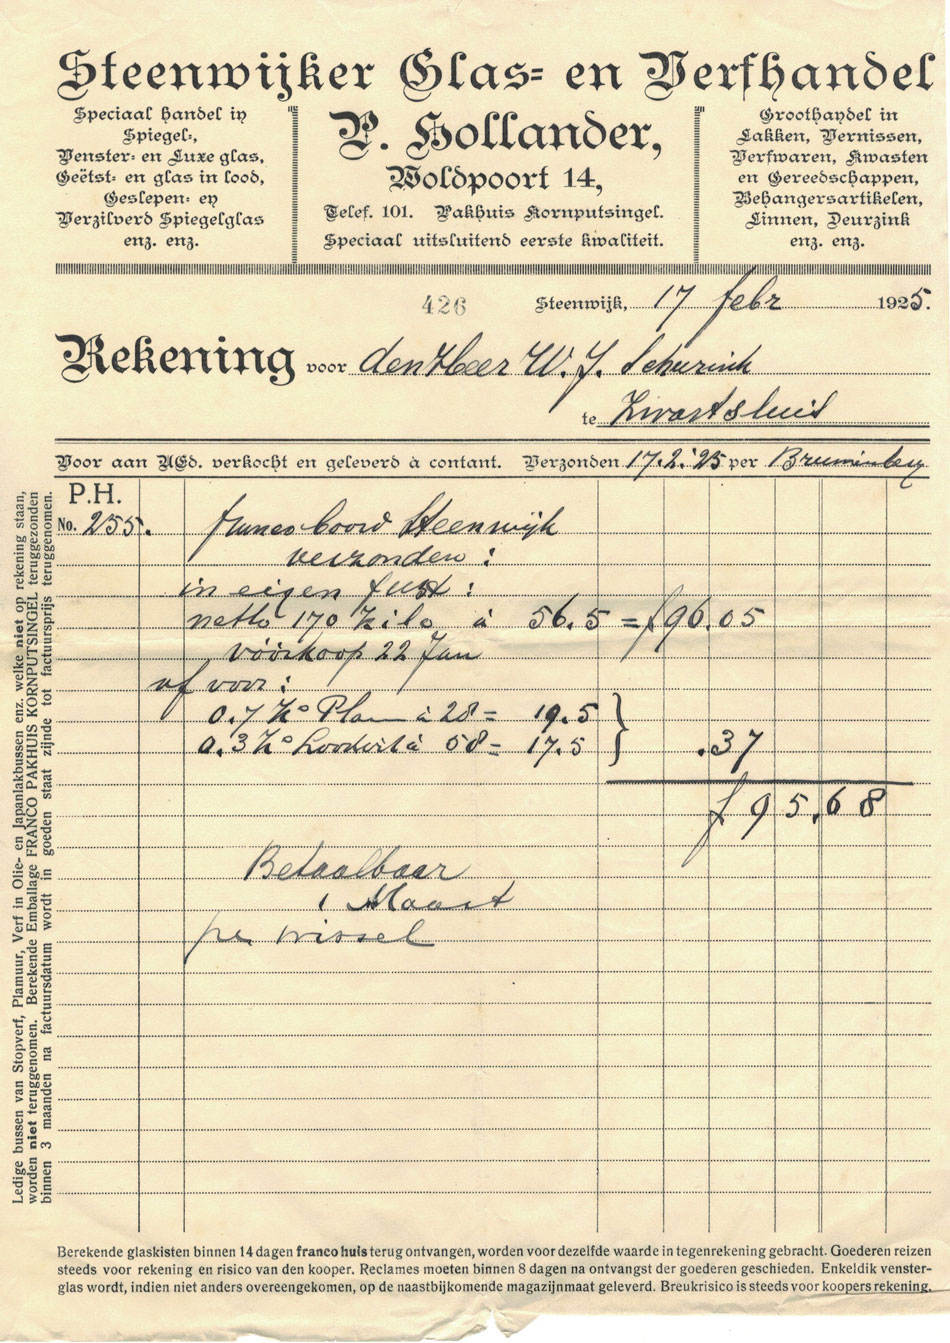 Steenwijker Glas= en Verfhandel
Speciaal handel in
Spiegel=,
Venster= en Luxe glas,
Geëtst= en glas in lood,
Geslepen= en
Verzilverd Spiegelglas
enz. enz.
P. Hollander,
Woldpoort 14,
Telef. 101. Pakhuis Kornputsingel.
Speciaal uitsluitend eerste kwaliteit.
Groothandel in
Lakken, Vernissen,
Verfwaren, Kwasten
en Gereedschappen,
Behangersartikelen,
Linnen, Deurzink
enz. enz.
426 Steenwijk, 17 febr 1925.
Rekening voor den Heer W. J. Schurink
te Zwartsluis
Voor aan UEd. verkocht en geleverd à contant. Verzonden 17.2.'25 per
P.H.
No. 255. franco boord Steenwijk
verzonden :
in eigen fust :
netto 170 Kilo à 56.5 = f 96.05
vóórkoop 22 Jan
af voor :
0.7 Ko Plam à 28 = 19.5
0.3 Ko Loodwit à 58 = 17.5 } .37
f 95.68
Betaalbaar
1 Maart
per wissel
Ledige bussen van Stopverf, Plamuur, Verf in Olie- en Japanlakbussen enz. welke niet op rekening staan,
worden niet teruggenomen. Berekende Emballage FRANCO PAKHUIS KORNPUTSINGEL teruggezonden
binnen 3 maanden na factuursdatum wordt in goeden staat zijnde tot factuursprijs teruggenomen.
Berekende glaskisten binnen 14 dagen franco huis terug ontvangen, worden voor dezelfde waarde in tegenrekening gebracht. Goederen reizen
steeds voor rekening en risico van den kooper. Reclames moeten binnen 8 dagen na ontvangst der goederen geschieden. Enkeldik venster-
glas wordt, indien niet anders overeengekomen, op de naastbijkomende magazijnmaat geleverd. Breukrisico is steeds voor koopers rekening.